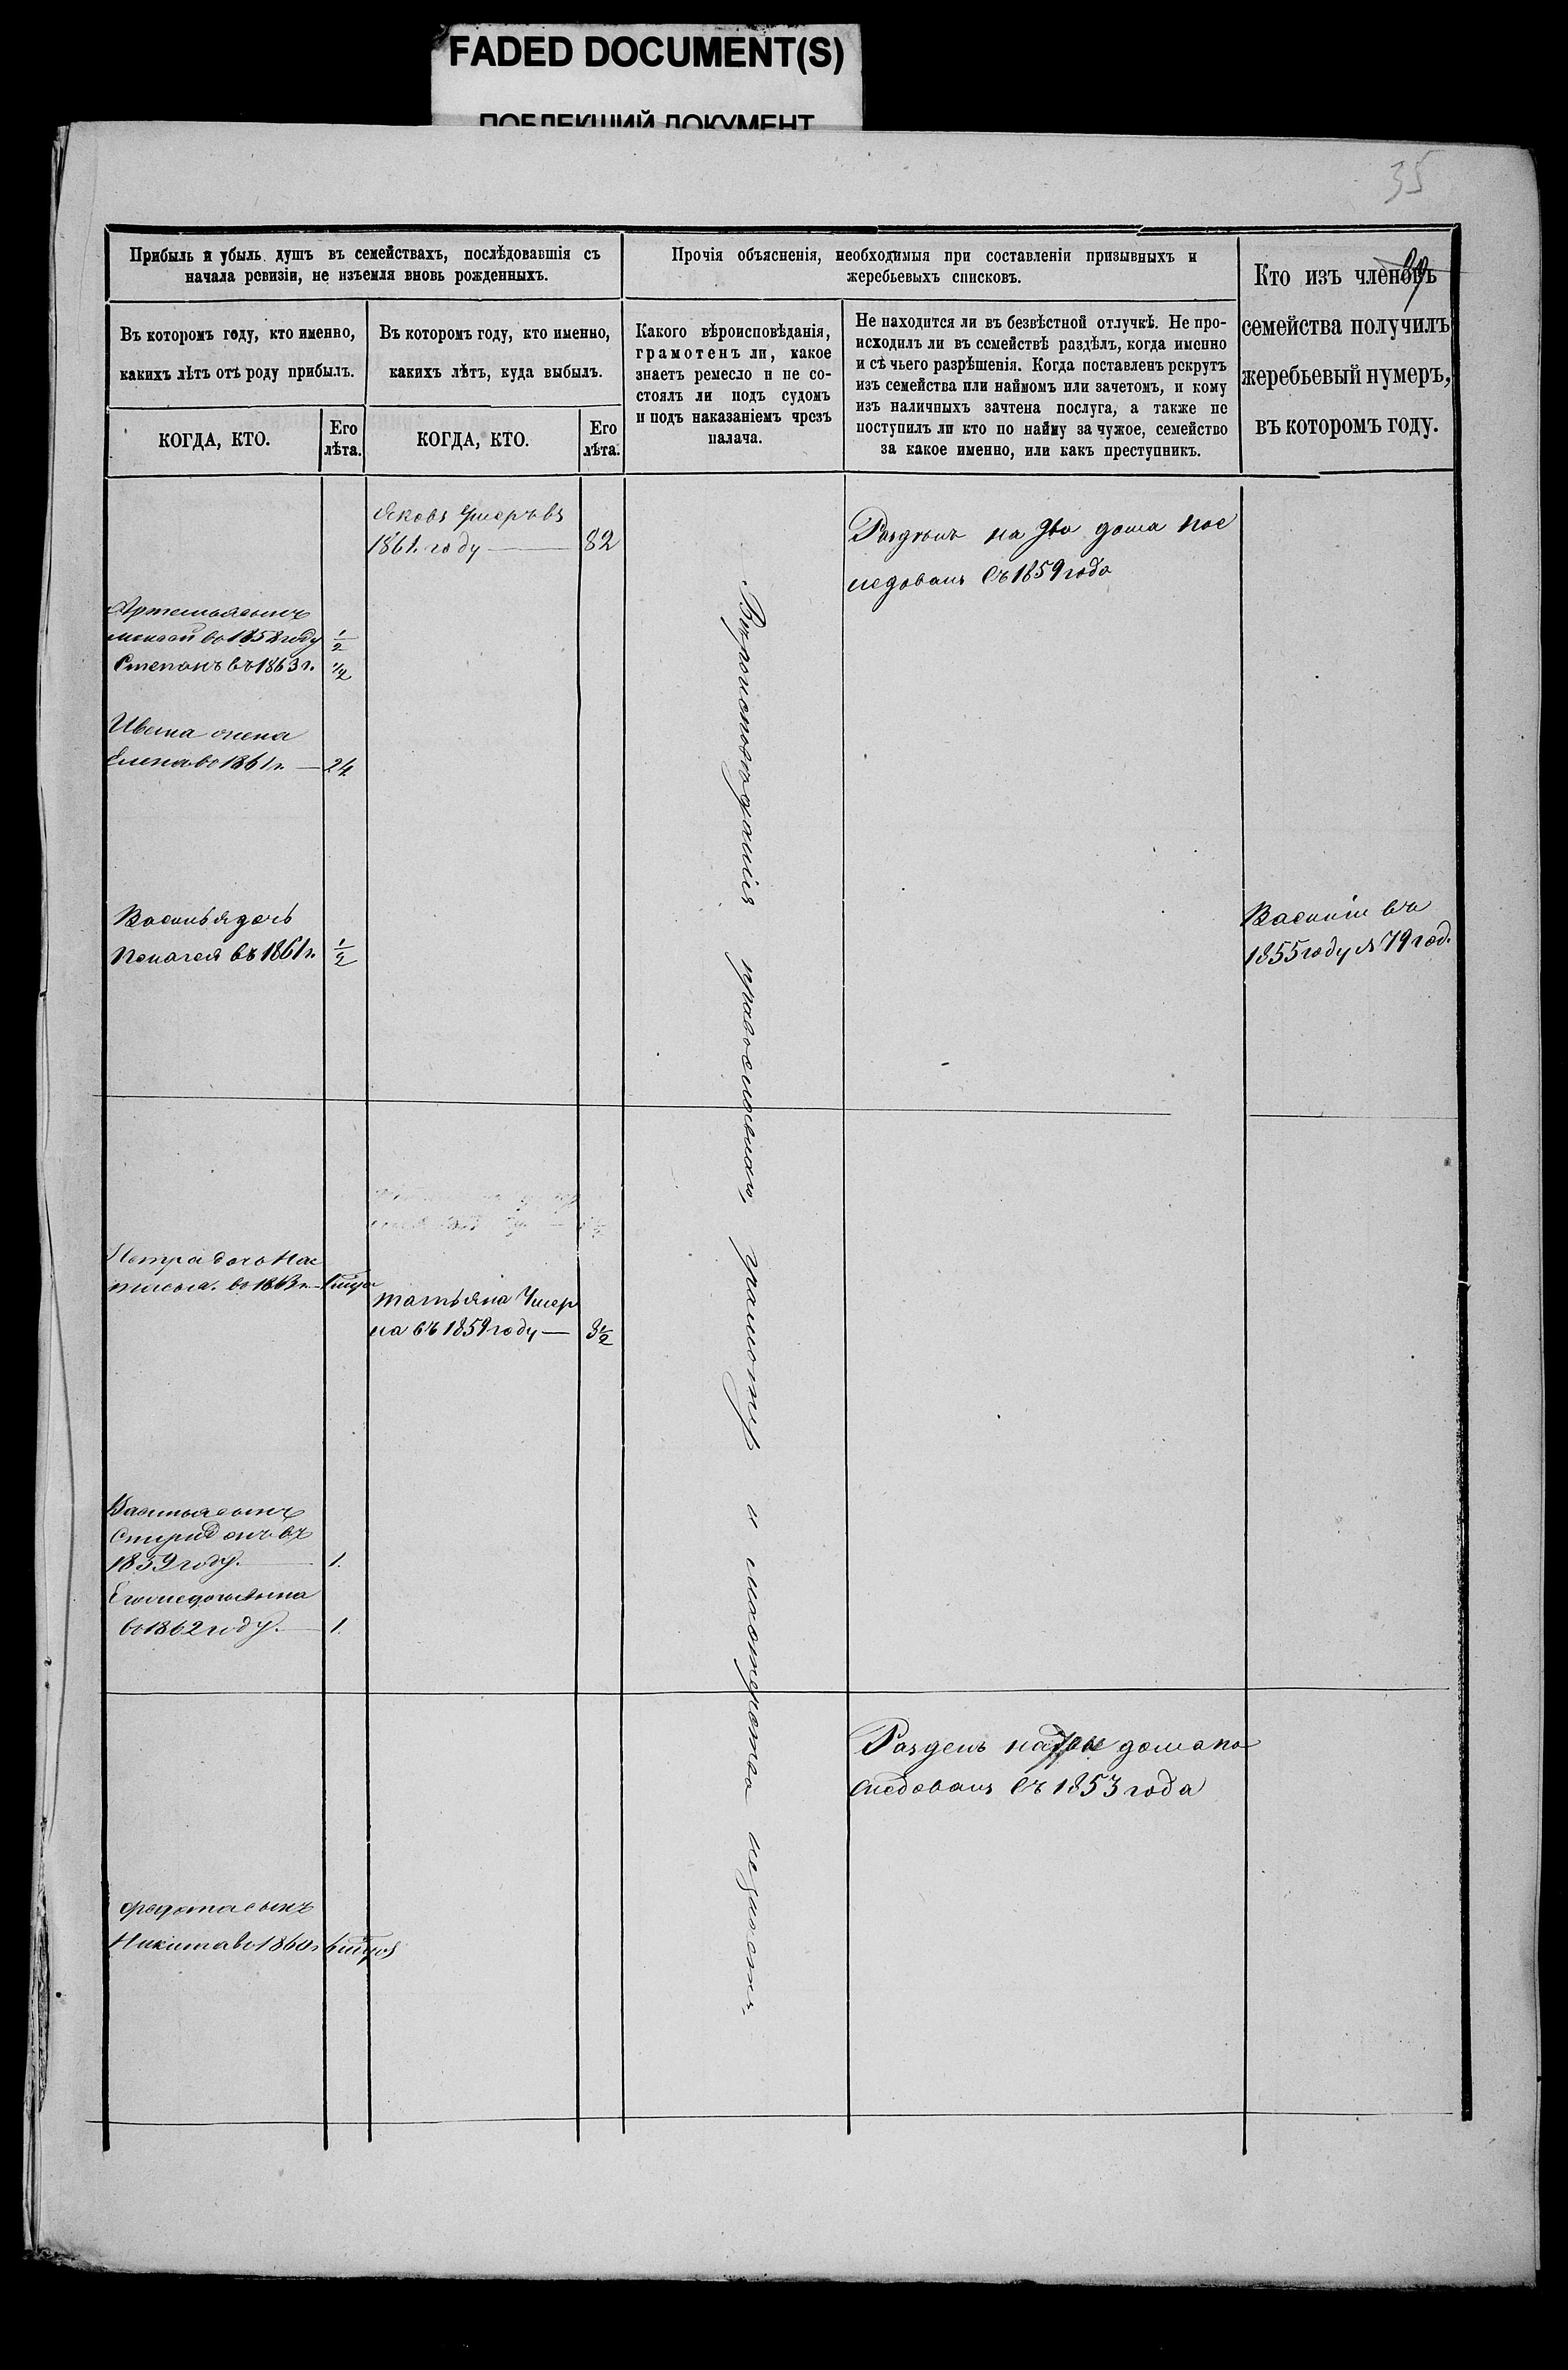 FADED DOCUMENT(S)
ПОБЛЕКШИЙ ДОКУМЕНТ
35
Прибыль и убыль душъ въ семействахъ, послѣдовавшія съ
начала ревизіи, не изъемля вновь рожденныхъ.
Прочія объясненія, необходимыя при составленіи призывныхъ и
жеребьевыхъ списковъ.
Кто изъ членовъ
семейства получилъ
жеребьевый нумеръ,
въ которомъ году.
Въ которомъ году, кто именно,
какихъ лѣтъ отъ роду прибылъ.
Въ которомъ году, кто именно,
какихъ лѣтъ, куда выбылъ.
Какого вѣроисповѣданія,
грамотенъ ли, какое
знаетъ ремесло и не со-
стоялъ ли подъ судомъ
и подъ наказаніемъ чрезъ
палача.
Не находится ли въ безвѣстной отлучкѣ. Не про-
исходилъ ли въ семействѣ раздѣлъ, когда именно
и съ чьего разрѣшенія. Когда поставленъ рекрутъ
изъ семейства или наймомъ или зачетомъ, и кому
изъ наличныхъ зачтена послуга, а также не
поступилъ ли кто по найму за чужое, семейство
за какое именно, или какъ преступникъ.
КОГДА, КТО.
Его
лѣта.
КОГДА, КТО.
Его
лѣта.
Яковъ Умеръ въ
1861. году — 82
Разделъ на два дома пос
ледовалъ съ 1859 года
Артемья сынъ
во 1858 году 1/2
Степанъ въ 1863 г. 1/2
Ивана жена
Елена во 1861 г. — 24
Василья дочь
Пелагея въ 1861 г. 1/2
Василій въ
1855 году № 79 год.
Вѣроисповѣданія православнаго, грамотѣ и мастерства не знаетъ.
Петра дочь Нас
тасья. во 1863 г.
Татьяна Умер
ла въ 1859 году — 3 1/2
Василья сынъ
Спиридонъ въ
1859 году. — 1.
Его же дочь Анна
во 1862 году. — 1.
Разделъ на три дома по
следовалъ съ 1853 года
Федота сынъ
Никита во 1860 г.